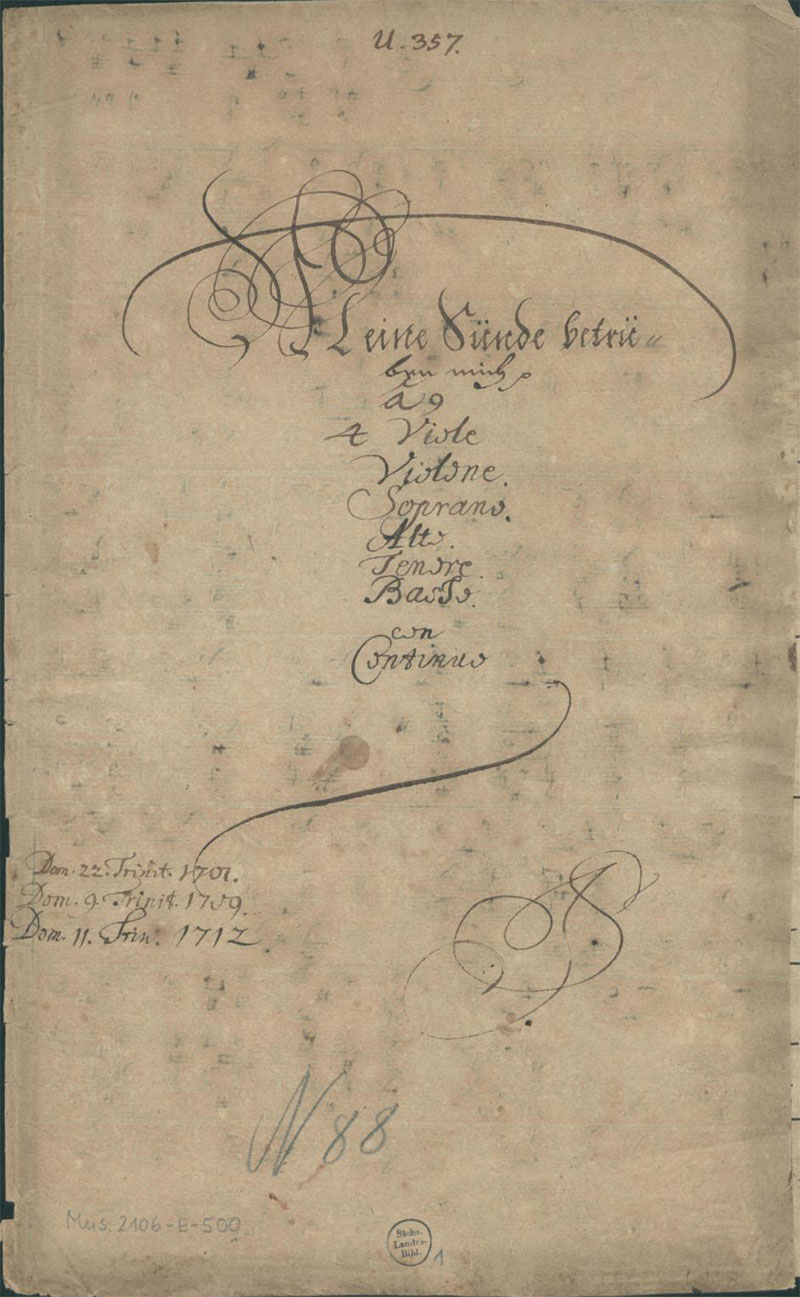 U. 357.
Meine Sünde betrü=
ben mich
à 9
4 Viole
Violone.
Soprano.
Alto.
Tenore.
Basso.
con
Continuo
Dom. 22. Trinit. 1701.
Dom. 9. Trinit. 1709.
Dom. 11. Trin. 1712
N 88
Mus. 2106-E-500
Sächs.
Landes-
Bibl.
1